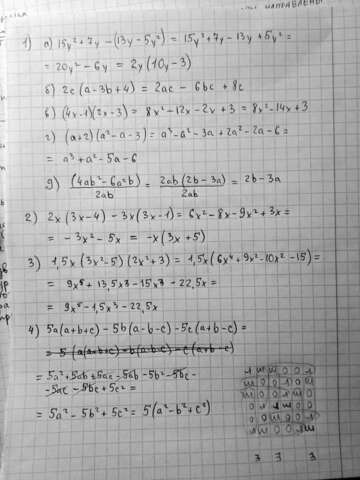 1) а) 15y²+7y-(13y-5y²) = 15y²+7y-13y+5y² =
= 20y²-6y = 2y(10y-3)
б) 2c(a-3b+4) = 2ac - 6bc + 8c
в) (4x-1)(2x-3) = 8x²-12x-2x+3 = 8x²-14x+3
г) (a+2)(a²-a-3) = a³-a²-3a+2a²-2a-6 =
= a³+a²-5a-6
д) (4ab²-6a²b)/2ab = 2ab(2b-3a)/2ab = 2b-3a
2) 2x(3x-4)-3x(3x-1) = 6x²-8x-9x²+3x =
= -3x²-5x = -x(3x+5)
3) 1,5x(3x²-5)(2x²+3) = 1,5x(6x⁴+9x²-10x²-15) =
= 9x⁵+13,5x³-15x³-22,5x =
= 9x⁵-1,5x³-22,5x
4) 5a(a+b+c)-5b(a-b-c)-5c(a+b-c) =
= 5(a(a+b+c)-b(a-b-c)-c(a+b-c)
= 5a²+5ab+5ac-5ab+5b²-5bc-
-5ac-5bc+5c² =
= 5a²-5b²+5c² = 5(a²-b²+c²)
3 3 3